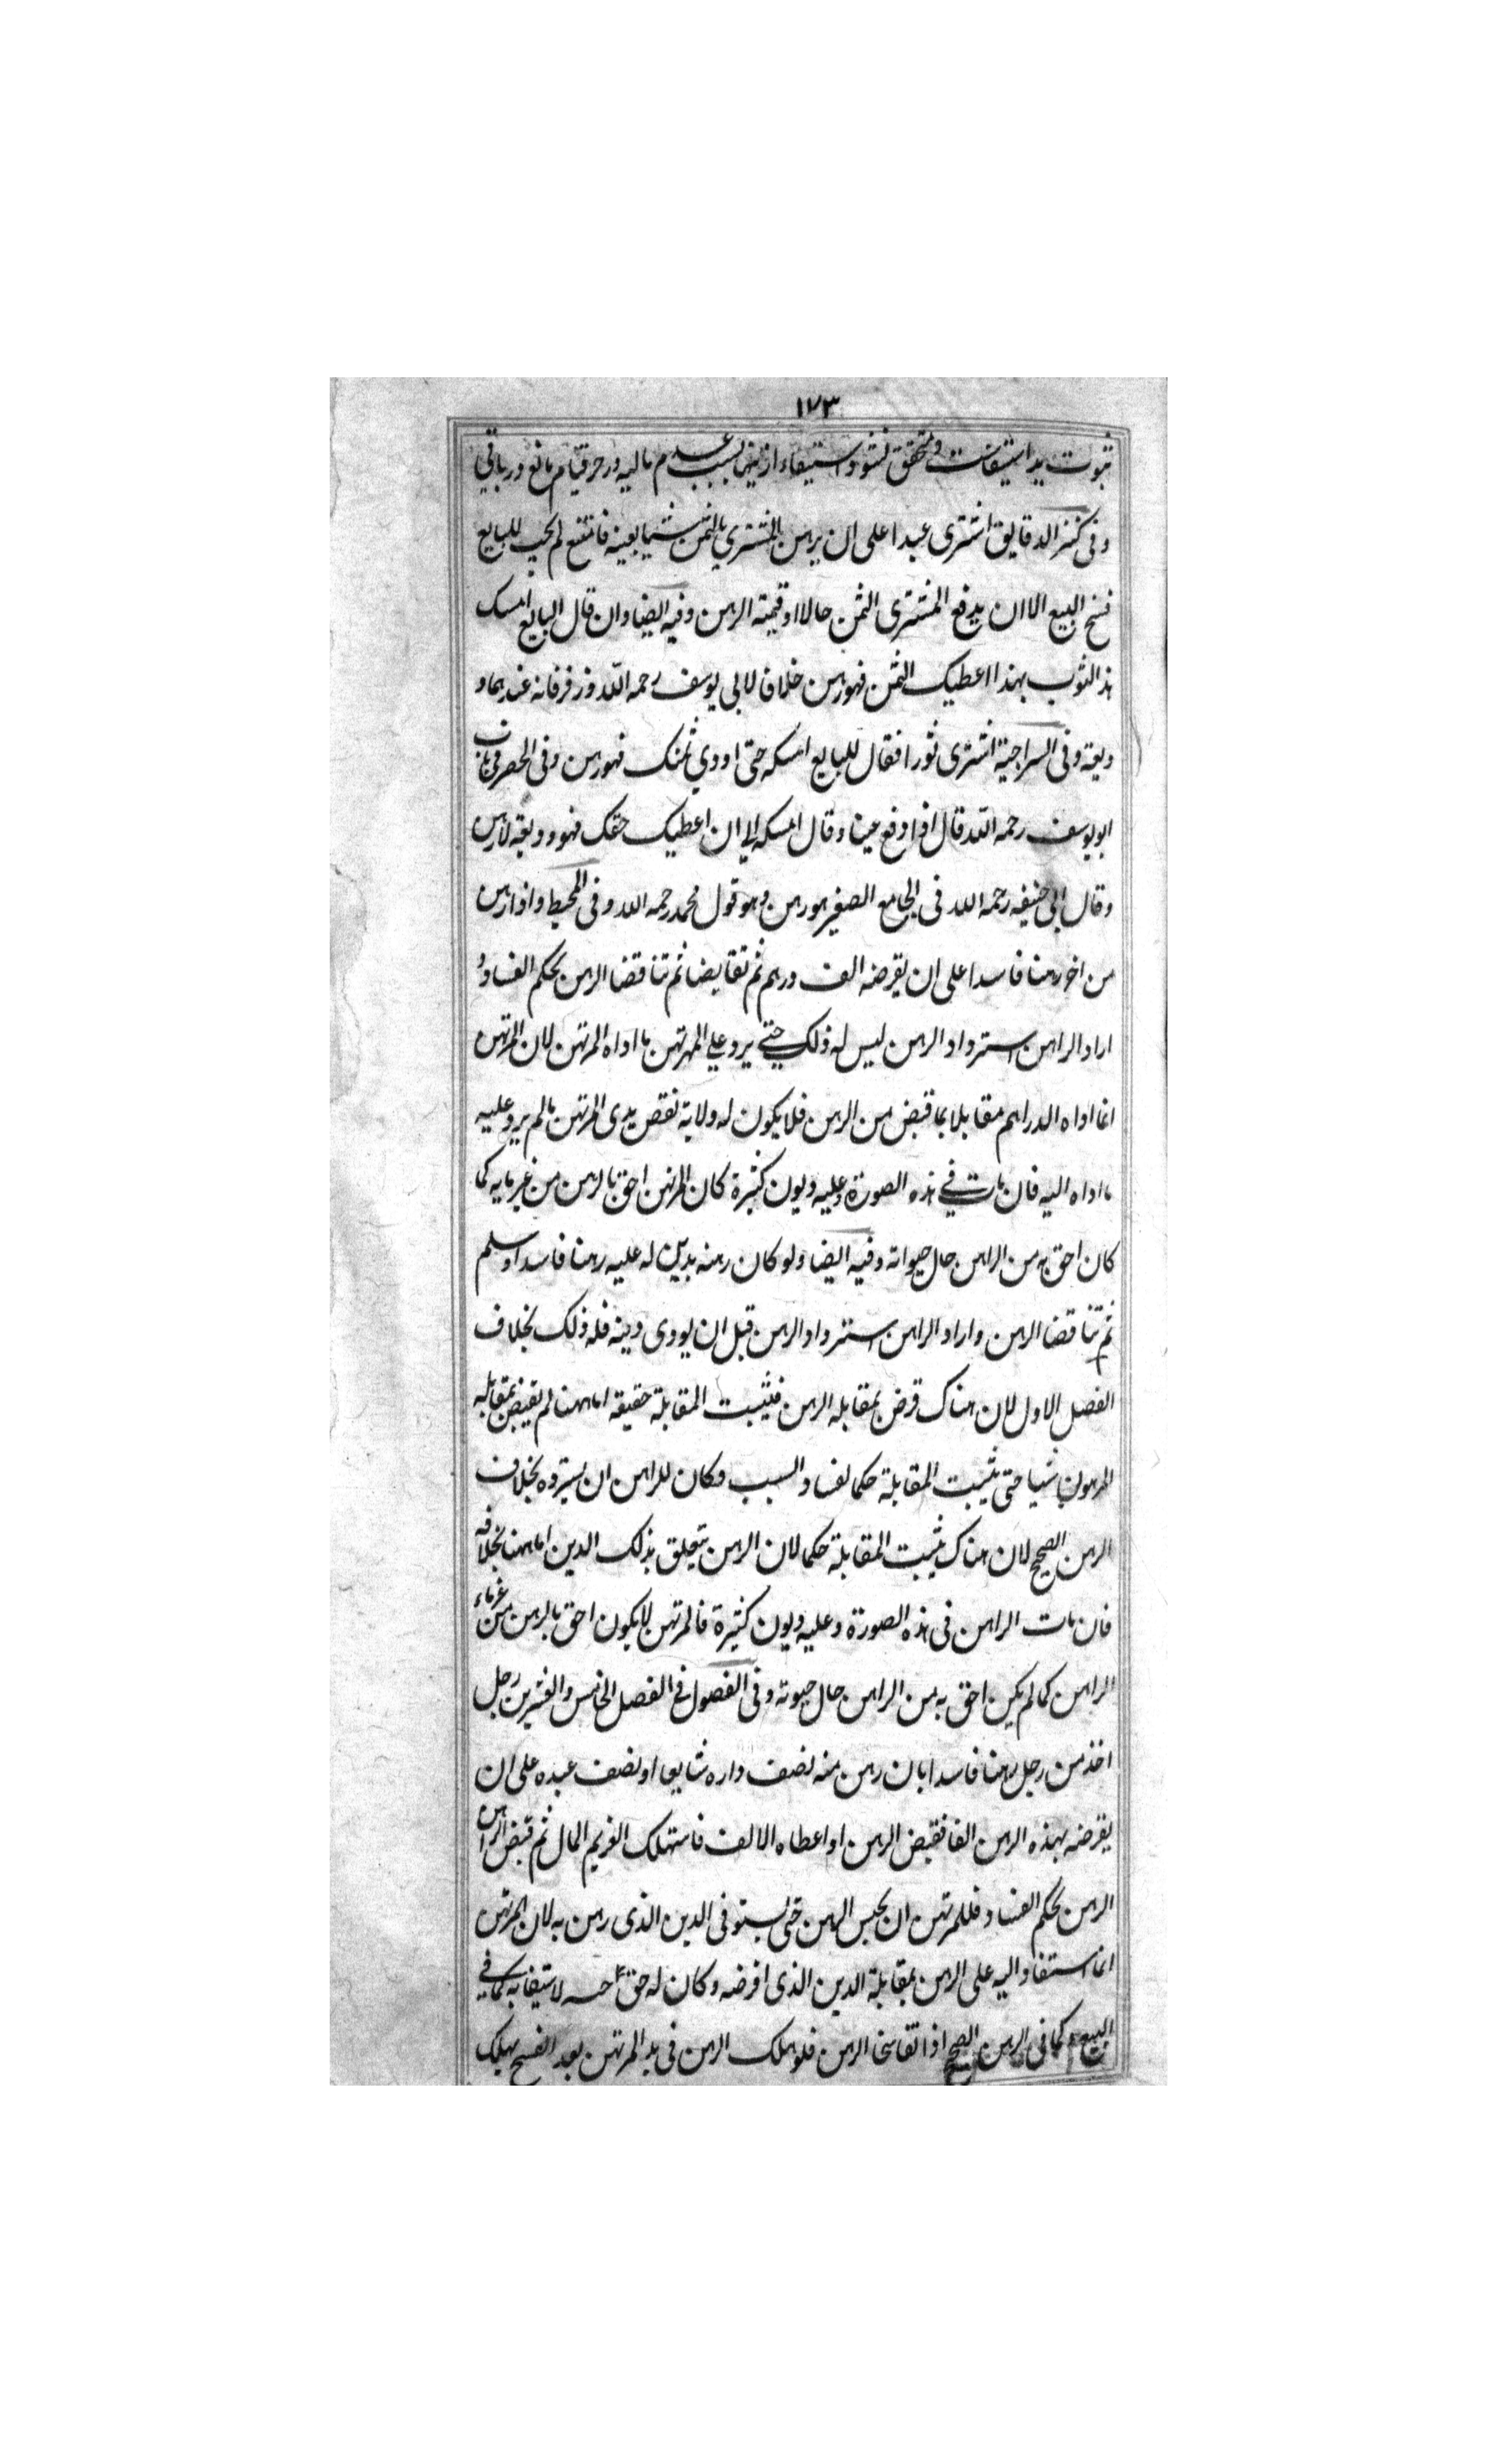 ١٧٣
ثبوت ید استیفاست و متحقق نشود استیفاء ازینها بسبب عدم مالیه در حر و قیام مانع در باقی
وفی کنز الدقایق اشتری عبدا علی ان یرهن المشتری بالثمن شیئا بعینه فامتنع لم یجبر للبایع
فسخ البیع الا ان یدفع المشتری الثمن حالا او قیمة الرهن وفیه ایضا وان قال البایع امسک
هذا الثوب بهذا اعطیک الثمن فهو رهن خلافا لابی یوسف رحمه الله وزفر فانه عندهما و
دیعة وفی السراجیة اشتری ثورا فقال للبایع امسکه حتی اودی ثمنک فهو رهن وفی الحصر
ابو یوسف رحمه الله قال اذا دفع عینا وقال امسکه الی ان اعطیک حقک فهو ودیعة لا رهن
وقال ابی حنیفه رحمه الله فی الجامع الصغیر هو رهن وهو قول محمد رحمه الله وفی المحیط واذا رهن
من اخر رهنا فاسدا علی ان یقرضه الف درهم ثم تقابضا ثم تناقضا الرهن بحکم الفساد و
اراد الراهن استرداد الرهن لیس له ذلک حتی یرد علی المرتهن ما اداه المرتهن لان المرتهن
انما اداه الدراهم مقابلا بما قبض من الرهن فلا یکون له ولایة نقص یدی المرتهن ما لم یرد علیه
ما اداه الیه فان مات فی هذه الصورة وعلیه دیون کثیرة کان المرتهن احق بالرهن من غرمایه کما
کان احق به من الراهن حال حیواته وفیه ایضا ولو کان رهنه بدین له علیه رهنا فاسدا وسلم
ثم تناقضا الرهن واراد الراهن استرداد الرهن قبل ان یودی دینه فله ذلک بخلاف
الفصل الاول لان هناک قرض بمقابله الرهن فیثبت المقابلة حقیقه اما ههنا لم یقبض بمقابله
المرهون شیا حتی یثبت المقابلة حکما لفساد السبب وکان للراهن ان یسترده بخلاف
الرهن الصحیح لان هناک یثبت المقابلة حکما لان الرهن یتعلق بذلک الدین اما ههنا بخلافه
فان مات الراهن فی هذه الصورة وعلیه دیون کثیرة فالمرتهن لا یکون احق بالرهن من غرماء
الراهن کما لم یکن احق به من الراهن حال حیوته وفی الفصول فی الفصل الخامس والعشرین رجل
اخذ من رجل رهنا فاسدا بان رهن منه نصف داره شایعا او نصف عبده علی ان
یقرضه بهذه الرهن الفا فقبض الرهن او اعطاه الالف فاستهلک الغریم المال ثم قبض الراهن
الرهن بحکم الفساد فللمرتهن ان یحبس الرهن حتی یستوفی الدین الذی رهن به لان المرتهن
انما استفاد الید علی الرهن بمقابلة الدین الذی اقرضه وکان له حق لاستیفایه کما فی
البیع کما فی الرهن الصحیح اذا تفاسخا الرهن فلو هلک الرهن فی ید المرتهن بعد الفسخ یهلک